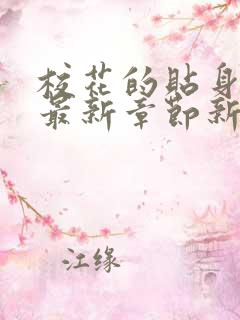 校花的贴身
最新章节新
江缘